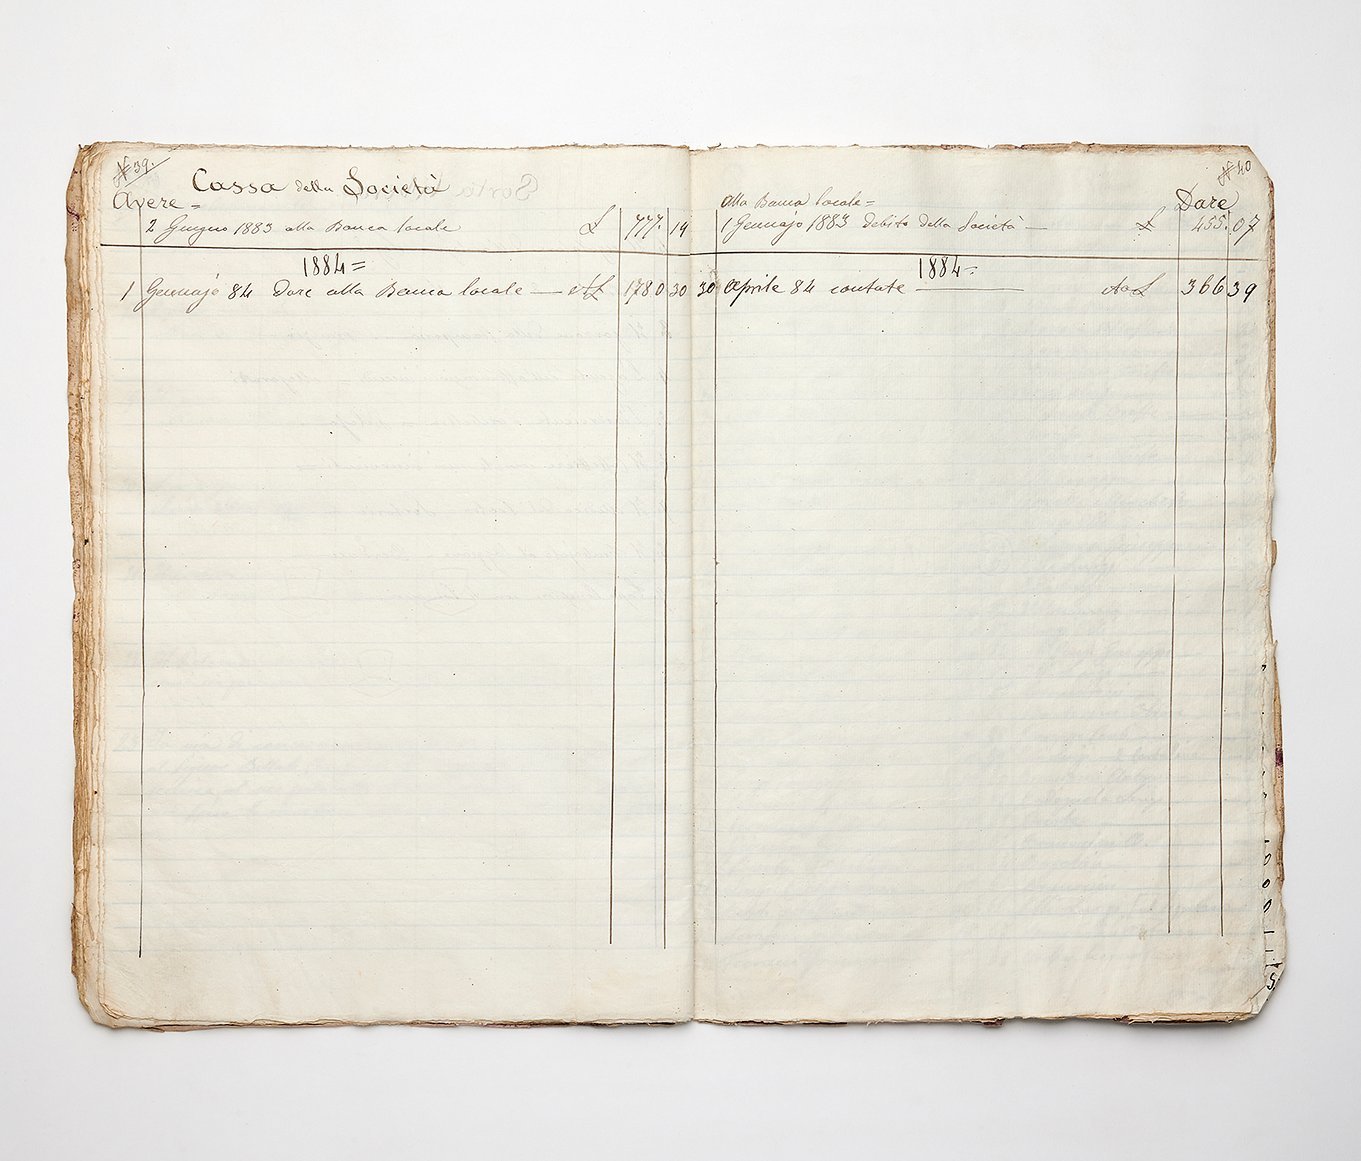 N 39.
Cassa della Società
Avere =
2 Giugno 1883 alla Banca locale £ 777. 19
1884 =
1 Gennajo 84 Dare alla Banca locale — £ 1780 30
N 40
Dare
alla Banca locale =
1 Gennajo 1883 debito della Società — £ 455. 07
1884 =
30 Aprile 84 contate — £ 366 39